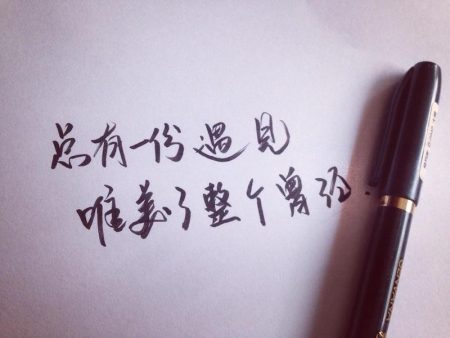 总有一份遇見
唯美了整个曾经！